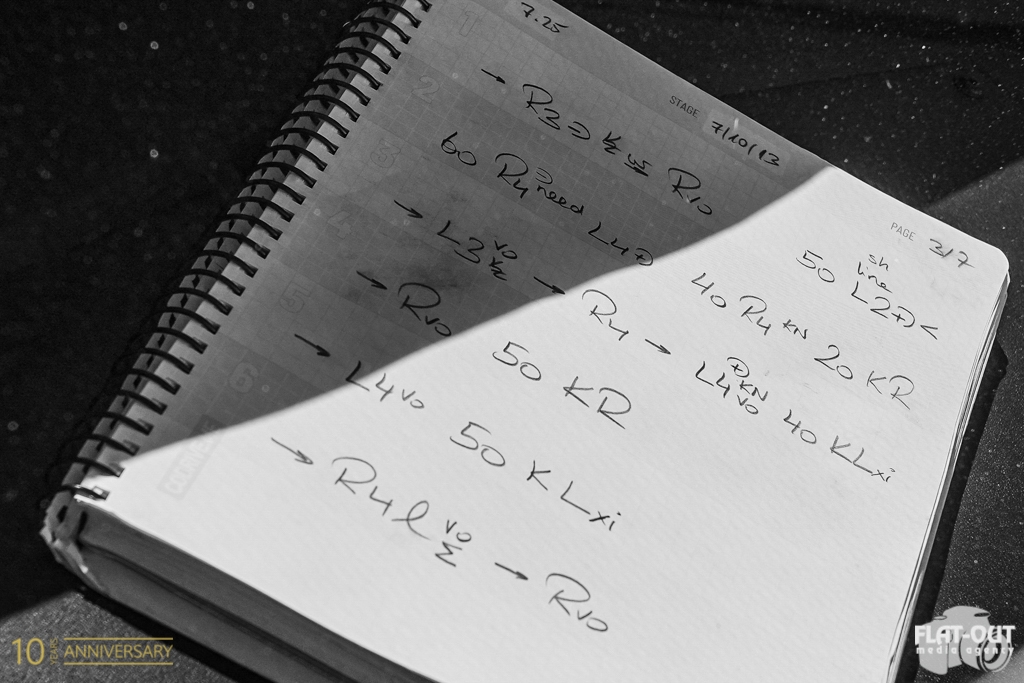 7.25
STAGE 7/10/13
PAGE 3/7
→ R3 R vo
60 R4 need L4 50 sh line L2 <
→ L3 vo → R4 40 R4 KN 20 KR
→ R vo 50 KR → L4 KN vo 40 KL xi
→ L4 vo 50 KL xi
→ R4 l vo Σ → R vo
1
2
3
4
5
6
10 YEARS ANNIVERSARY
FLAT-OUT
media agency